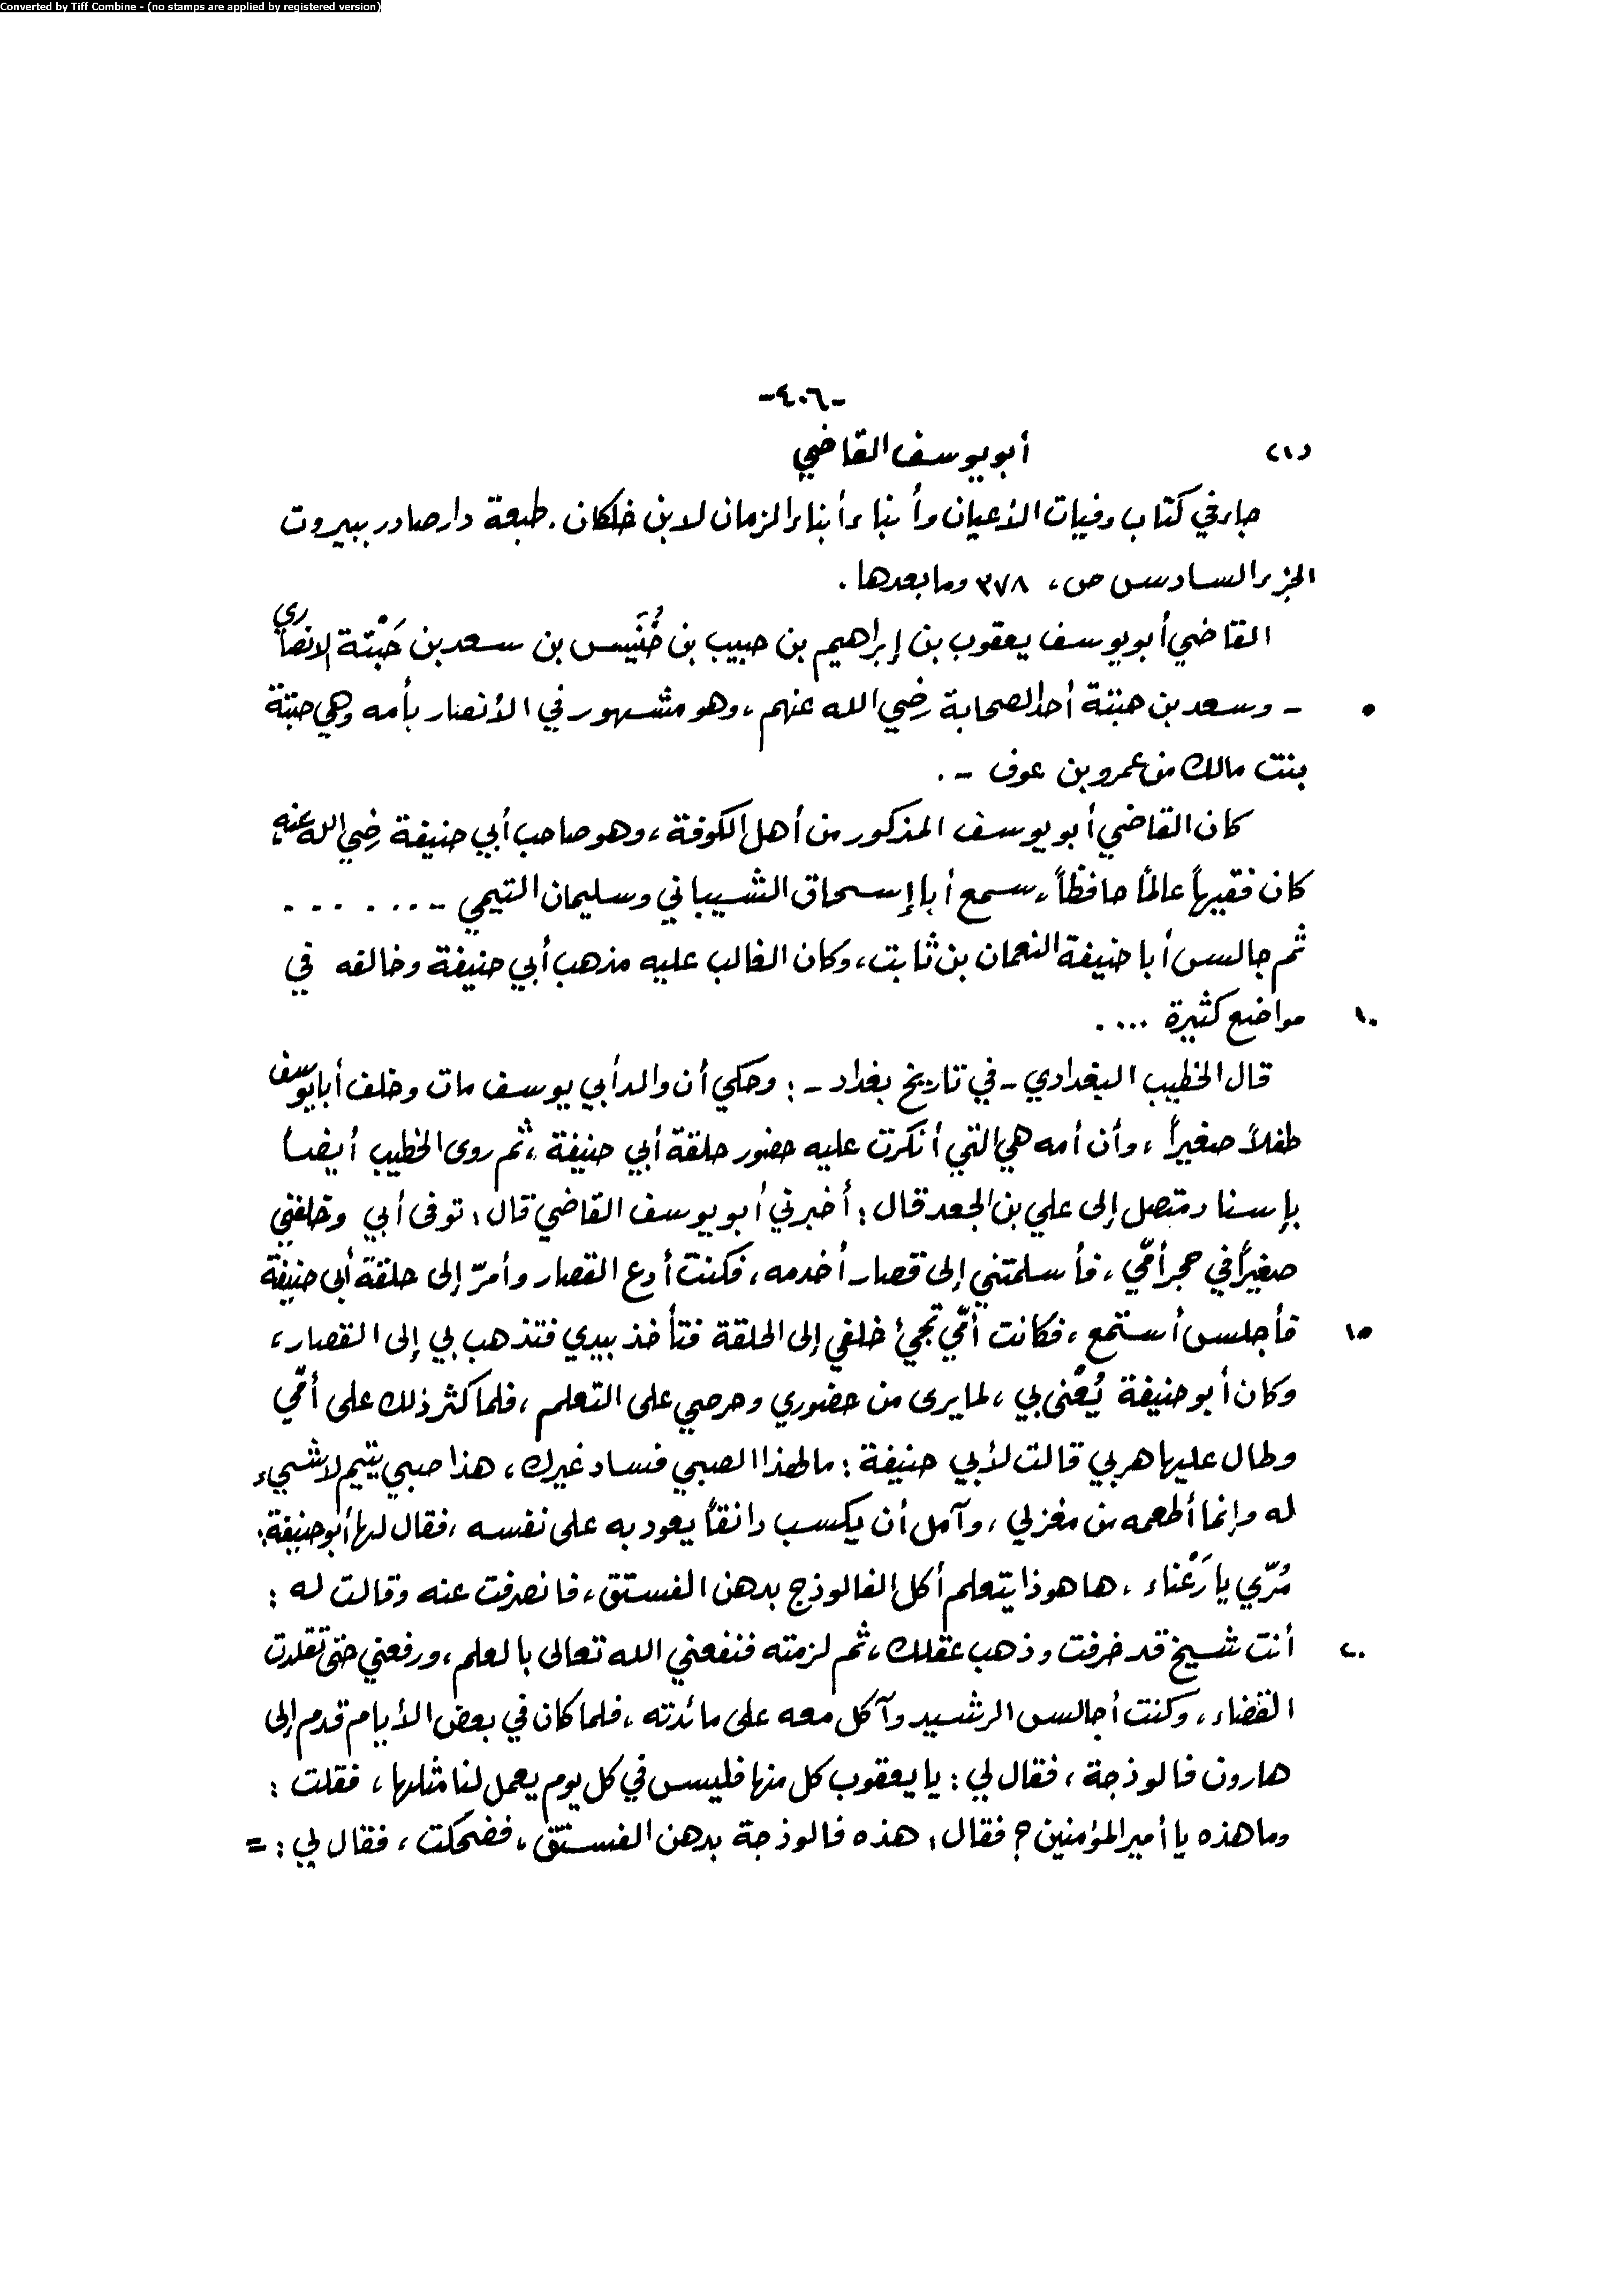 Converted by Tiff Combine - (no stamps are applied by registered version)
-٤٠٦-
(١) أبو يوسف القاضي
جاء في كتاب وفيات الأعيان وأنباء أبناء الزمان لابن خلكان. طبعة دار صادر ببيروت
الجزء السادس ص، ٣٧٨ وما بعدها.
القاضي أبو يوسف يعقوب بن إبراهيم بن حبيب بن خُنَيس بن سعد بن حَبْتة الانصاري
٥ - وسعد بن حبتة أحد الصحابة رضي الله عنهم، وهو مشهور في الأنصار بأمه وهي حبتة
بنت مالك من عمرو بن عوف -.
كان القاضي أبو يوسف المذكور من أهل الكوفة، وهو صاحب أبي حنيفة رضي الله عنه،
كان فقيهاً عالماً حافظاً، سمع أبا إسحاق الشيباني وسليمان التيمي ........
ثم جالس أبا حنيفة النعمان بن ثابت، وكان الغالب عليه مذهب أبي حنيفة وخالفه في
١٠ مواضع كثيرة ....
قال الخطيب البغدادي - في تاريخ بغداد -: وحكي أن والد أبي يوسف مات وخلف أبا يوسف
طفلاً صغيراً، وأن أمه هي التي أنكرت عليه حضور حلقة أبي حنيفة، ثم روى الخطيب أيضاً
بإسناد متصل إلى علي بن الجعد قال: أخبرني أبو يوسف القاضي قال: توفى أبي وخلفني
صغيراً في حجر أمّي، فأسلمتني إلى قصار أخدمه، فكنت أدع القصار وأمرّ إلى حلقة أبى حنيفة
١٥ فأجلس أستمع، فكانت أمّي تجيئ خلفي إلى الحلقة فتأخذ بيدي فتذهب بي إلى القصار،
وكان أبو حنيفة يُعْنى بي، لما يرى من حضوري وحرصي على التعلم، فلما كثر ذلك على أمّي
وطال عليها هربي قالت لأبي حنيفة: ما لهذا الصبي فساد غيرك، هذا صبي يتيم لا شيء
له وإنما أطعمه من مغزلي، وآمل أن يكسب دانقاً يعود به على نفسه، فقال لها أبو حنيفة:
مُرّي يا رَعْناء، ها هو ذا يتعلم أكل الفالوذج بدهن الفستق، فانصرفت عنه وقالت له:
٢٠ أنت شيخ قد خرفت وذهب عقلك، ثم لزمته فنفعني الله تعالى بالعلم، ورفعني حتى تقلدت
القضاء، وكنت أجالس الرشيد وآكل معه على مائدته، فلما كان في بعض الأيام قدم إلى
هارون فالوذجة، فقال لي: يا يعقوب كل منها فليس في كل يوم يعمل لنا مثلها، فقلت:
وما هذه يا أمير المؤمنين؟ فقال: هذه فالوذجة بدهن الفستق، فضحكت، فقال لي: =